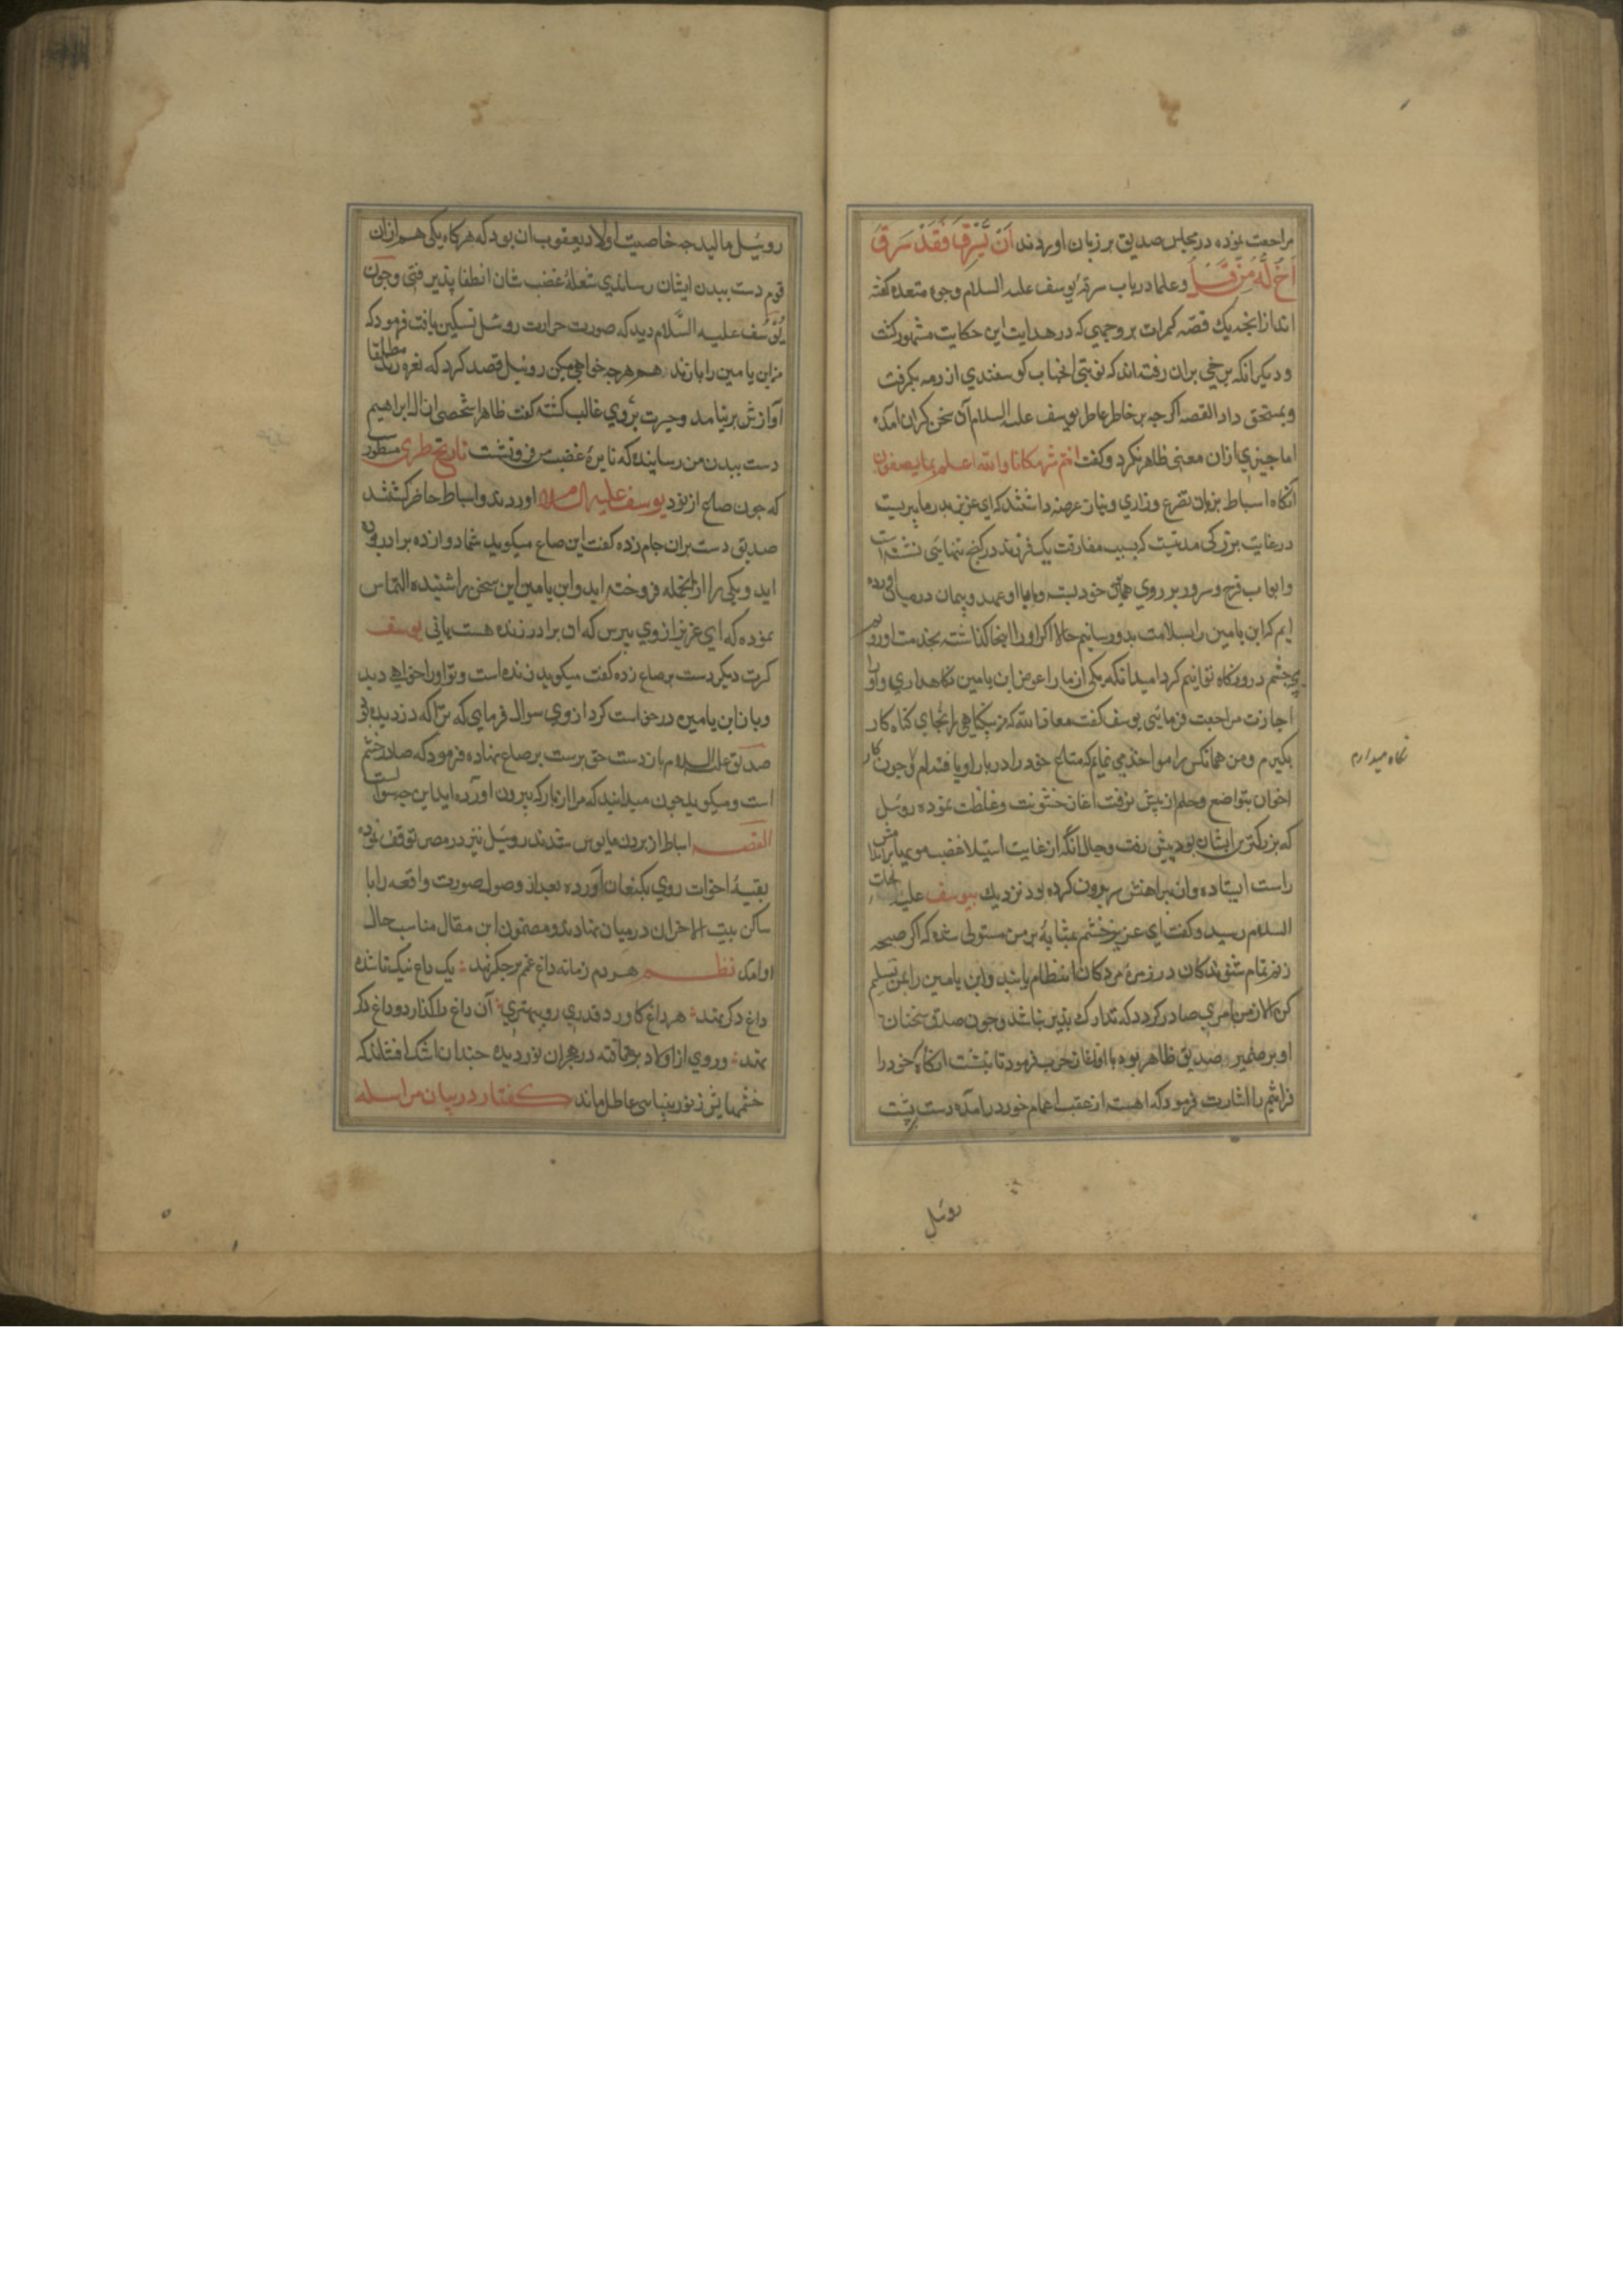 مراجعت نموده در مجلس صدیق بر زبان اوردند اَن یَّسْرِق فَقَدْ سَرَقَ
اَخٌ لَّهُ مِن قَبْلُ وعلما درباب سرقه یوسف علیه السلام وجوه متعدده کفته
اند ازانجمله یک قصه کمرست بر وجهی که در هدایت این حکایت مشهور کشت
و دیکر انکه برخی بران رفته اند که نوبتی انجناب کوسفندی از رمه بکرفت
وبمستحق داد القصه اکرجه بر خاطر عاطر یوسف علیه السلام آن سخن کران امده
اما جیزی ازان معنی ظاهر نکرد وکفت انتم شر مکانا والله اعلم بما یصفون
انکاه اسباط بزبان تضرع وزاری ونیاز عرضه داشتند که ای عزیز پدر ما پیریست
در غایت بزرکی مدتیست که بسبب مفارقت یک فرزند در کنج تنهایی نشسته است
وابواب فرح وسرور بر روی همایون خود بسته وما با او عهد وپیمان درمیان اورده
ایم که ابن یامین را بسلامت بدو رسانیم حالا اکر اورا اینجا کذاشته بخدمت او رویم
بچه جشم در رو نکاه توانیم کرد امید انکه یکی از ما را عوض ابن یامین نکاهداری واورا
اجازت مراجعت فرمایی یوسف کفت معاذ الله که من بیکناهی را بجای کناه کار
بکیرم ومن همانکس را مواخذه می نمایم که متاع خود را در بار او یافته ام وجون کار
اخوان بتواضع وحلم از پیش نرفت اغاز خشونت وغلظت نموده روبیل
که بزرکترین ایشان بود پیش رفت وحال انکه از غایت استیلا غضب مویها بر اندامش
راست ایستاده وازن پیراهنش سر برون کرده بود نزدیک بیوسف علیه
السلام رسید وکفت ای عزیز خشم بمثابهٔ بر من مستولی شده که اکر صیحه
زنم تمام شنوندکان در زمرهٔ مردکان انتظام یابند وابن یامین را بمن تسلیم
کن والا از من امری صادر کردد که تدارک پذیر نباشد وجون صدق سخنان
او بر ضمیر صدیق ظاهر بود با او اغاز حرب فرمود تا بنشست انکاه خود را
فراشم را اشارت فرمود که اهسته از عقب اعمام خود درامده دست بپشت
نکاه میدارم
روبیل
روبیل مالید جه خاصیت اولاد یعقوب ان بود که هرکاه یکی هم ازان
قوم دست ببدن ایشان رسانیدی شعلهٔ غضب شان انطفا پذیرفتی وجون
یوسف علیه السلام دید که صورت حرارت روبیل تسکین یافت فرمود که
من ابن یامین را بازند هم هرجه خواهی میکن روبیل قصد کرد که نعره زند مطلقا
آوازش برنیامد وحیرت بروی غالب کشته کفت ظاهرا شخصی از ال ابراهیم
دست ببدن من رسانیده که نایرهٔ غضب من فرونشست تاریخ طبری مسطور
که جون صاع از نزد یوسف علیه السلام اوردند واسباط حاضر کشتند
صدیق دست بران جام زده کفت این صاع میکوید شما دوازده برادر بوده
اید ویکی را ازانجمله فروخته اید وابن یامین این سخن را شنیده التماس
نموده که ای عزیز ازوی بپرس که ان برادر زنده هست یانی یوسف
کرت دیکر دست بر صاع زده کفت میکوید زنده است وتو اورا خواهی دید
وباز ابن یامین درخواست کرد ازوی سوال فرمای که ترا که دزدیده بود
صدیق علیه السلام باز دست حق پرست بر صاع نهاده فرمود که صاع در خشم
است ومیکوید جون میدانید که مرا از بار که بیرون آورده اید این جه سوال است
القصه اسباط از بردن مایوس شدند روبیل نیز در مصر توقف نموده
بقیهٔ اخوات روی بکنعان آورده بعد از وصول صورت واقعه را با
ساکن بیت الاحزان درمیان نهادند ومضمون این مقال مناسب حال
او امد نظم هردم زمانه داغ غم بر جکر نهد یک داغ نیک ناشده
داغ دکر نهد هر داغ کاورد قدری رو ببهتری آن داغ را کذارد وداغ دکر
نهد وروی از اولاد برتافته در هجران نور دیده جندان اشک افشاند که
جشمهایش ز نور بینایی عاطل ماند کفتار در بیان مراسله